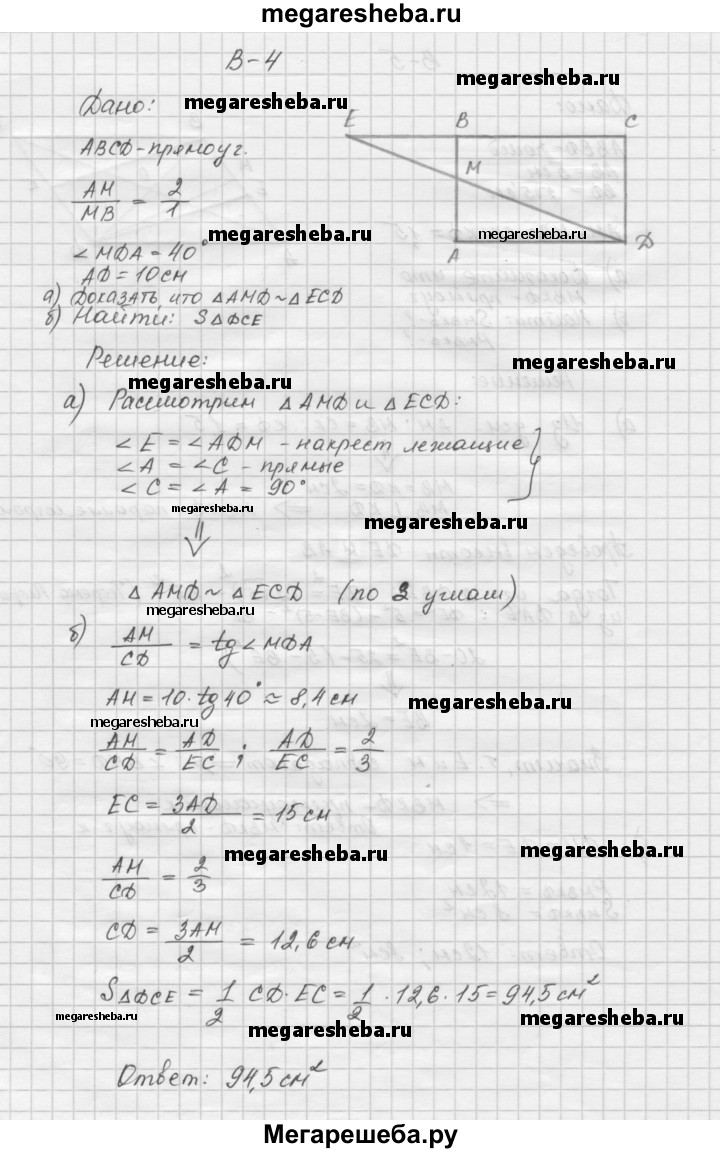 megaresheba.ru
В-4
Дано: megaresheba.ru megaresheba.ru
E B C
ABCD-прямоуг.
M
AM/MB = 2/1
megaresheba.ru megaresheba.ru
A D
∠MDA = 40°
AD = 10 см
а) Доказать, что △AMD ~ △ECD
б) Найти: S△DCE
Решение: megaresheba.ru
megaresheba.ru
а) Рассмотрим △AMD и △ECD:
∠E = ∠ADM - накрест лежащие
∠A = ∠C - прямые
∠C = ∠A = 90°
megaresheba.ru megaresheba.ru
⇓
△AMD ~ △ECD (по 2 углам)
megaresheba.ru
б) AM/CD = tg∠MDA
AM = 10·tg40° ≈ 8,4 см megaresheba.ru
megaresheba.ru
AM/CD = AD/EC ; AD/EC = 2/3
EC = 3AD/2 = 15 см
megaresheba.ru megaresheba.ru
AM/CD = 2/3
CD = 3AM/2 = 12,6 см
megaresheba.ru
S△DCE = 1/2 CD·EC = 1/2 · 12,6 · 15 = 94,5 см²
megaresheba.ru megaresheba.ru megaresheba.ru
Ответ: 94,5 см²
Мегарешеба.ру